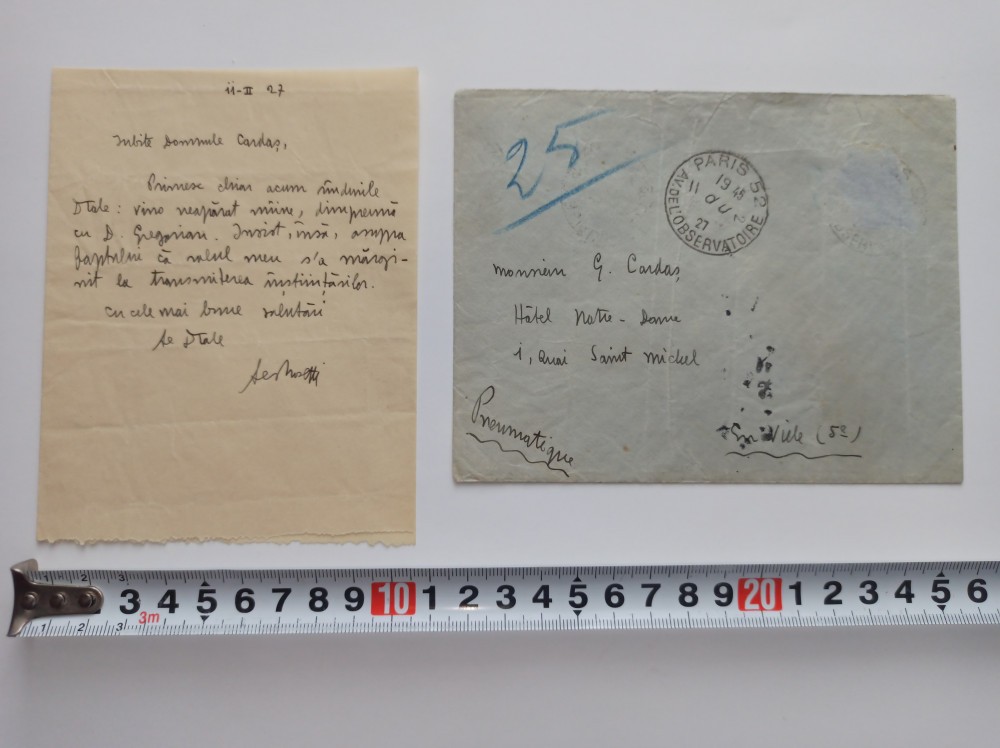 11-II 27
Iubite Domnule Cardaș,
Primesc chiar acum rîndurile
Dtale: vino neapărat mîine, dimpreună
cu D. Gregorian. Insist, însă, asupra
faptului că rolul meu s'a mărgi-
nit la transmiterea înștiințărilor.
cu cele mai bune salutări
Al Dtale
AlRosetti
25
PARIS 52
19 45
11
27
AV. DE L'OBSERVATOIRE
Monsieur G. Cardaș
Hôtel Notre-Dame
1, Quai Saint Michel
Pneumatique
En Ville (5e)
1 2 3 3 4 5 6 7 8 9 10 1 2 3 4 5 6 7 8 9 20 1 2 3 4 5 6
3m
1 2 3